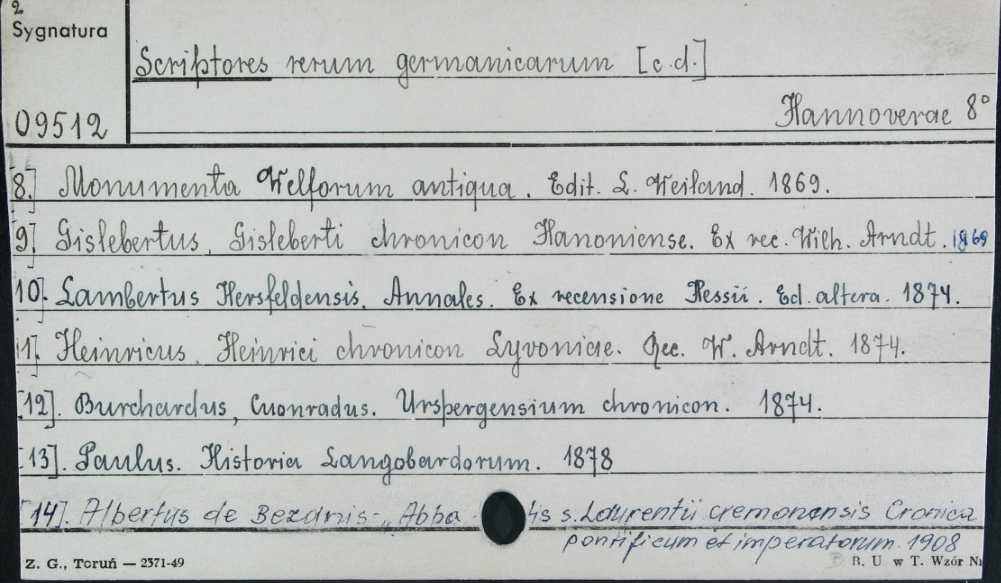 2
Sygnatura
Scriptores rerum germanicarum [c.d.]
09512
Hannoverae 8°
[8.] Monumenta Welforum antiqua. Edit. L. Weiland. 1869.
[9]. Gislebertus, Gisleberti chronicon Hanoniense. Ex rec. Wilh. Arndt. 1869
[10]. Lambertus Hersfeldensis. Annales. Ex recensione Hessii. Ed. altera. 1874.
[11]. Heinricus, Heinrici chronicon Lyvoniae. Rec. W. Arndt. 1874.
[12]. Burchardus, Cuonradus. Urspergensium chronicon. 1874.
[13]. Paulus. Historia Langobardorum. 1878
[14]. Albertus de Bezanis - „Abba tis s. Laurentii cremonensis Cronica
pontificum et imperatorum. 1908
Z. G., Toruń — 2371-49
B. U w T. Wzór Nr